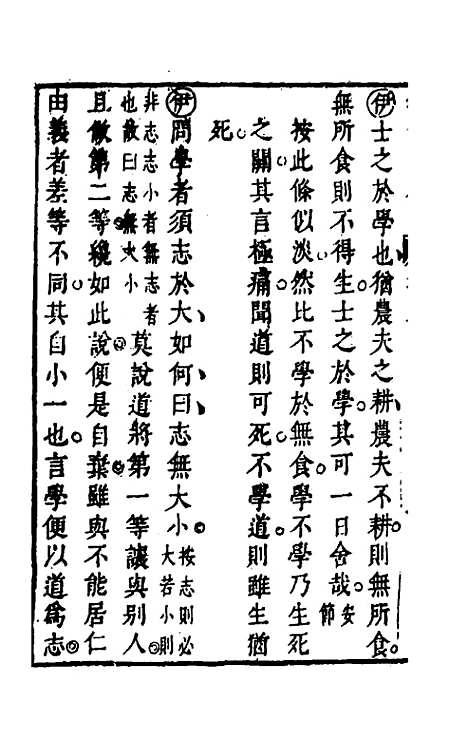 伊士之於學也猶農夫之耕農夫不耕則無所食
無所食則不得生士之於學其可一日舍哉安節
按此條似淡然比不學於無食學不學乃生死
之關其言極痛聞道則可死不學道則雖生猶
死
伊問學者須志於大如何曰志無大小按志則必大若小則
非志志小者無志者也故曰志無大小莫說道將第一等讓與別人
且做第二等纔如此說便是自棄雖與不能居仁
由義者差等不同其自小一也言學便以道為志